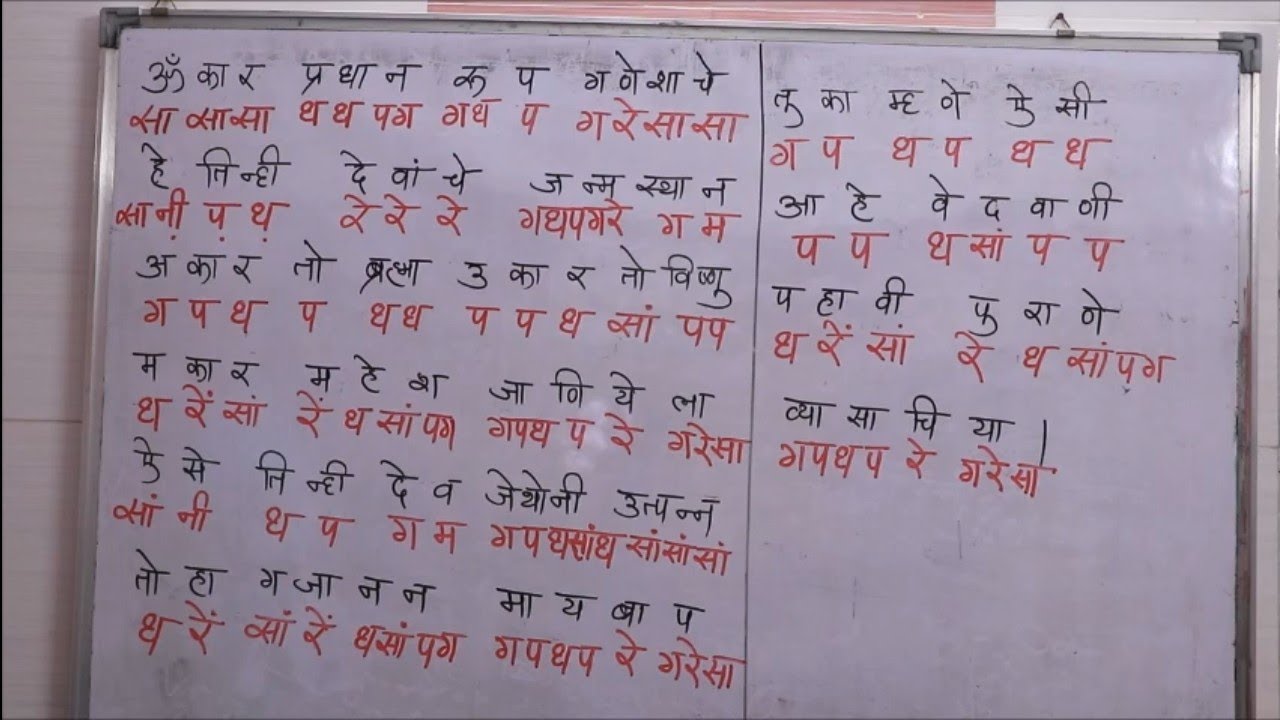 ॐ कार प्रधान रूप गणेशाचे
सा सासा धध पग गध प गरेसासा
हे तिन्ही देवांचे जन्म स्थान
सानी़ प़ ध़ रे रे रे गधपगरे ग म
अ कार तो ब्रह्मा उ कार तो विष्णु
ग प ध प धध प प ध सां पप
म कार महेश जाणियेला
ध रें सां रें ध सांपग गपध प रे गरेसा
ऐसे तिन्ही देव जेथोनी उत्पन्न
सां नी ध प ग म गपधसांध सांसांसां
तो हा गजानन मायबाप
ध रें सां रें धसांपग गपधप रे गरेसा
तुका म्हणे ऐसी
ग प ध प ध ध
आहे वेदवाणी
प प ध सां प प
पहावी पुराणे
ध रें सां रें ध सांपग
व्यासाचिया ।
गपधप रे गरेसा